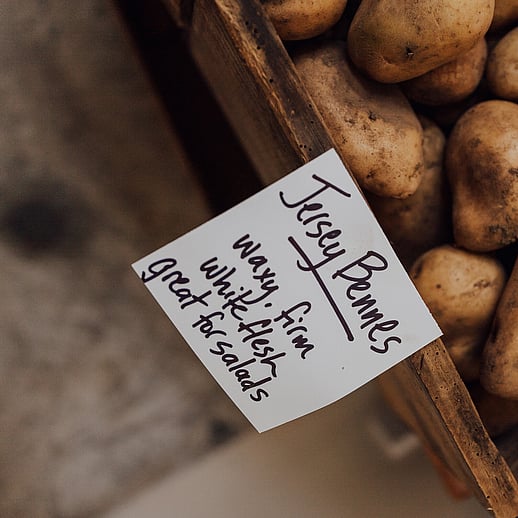 Jersey Bennes
waxy. firm
white flesh
great for salads